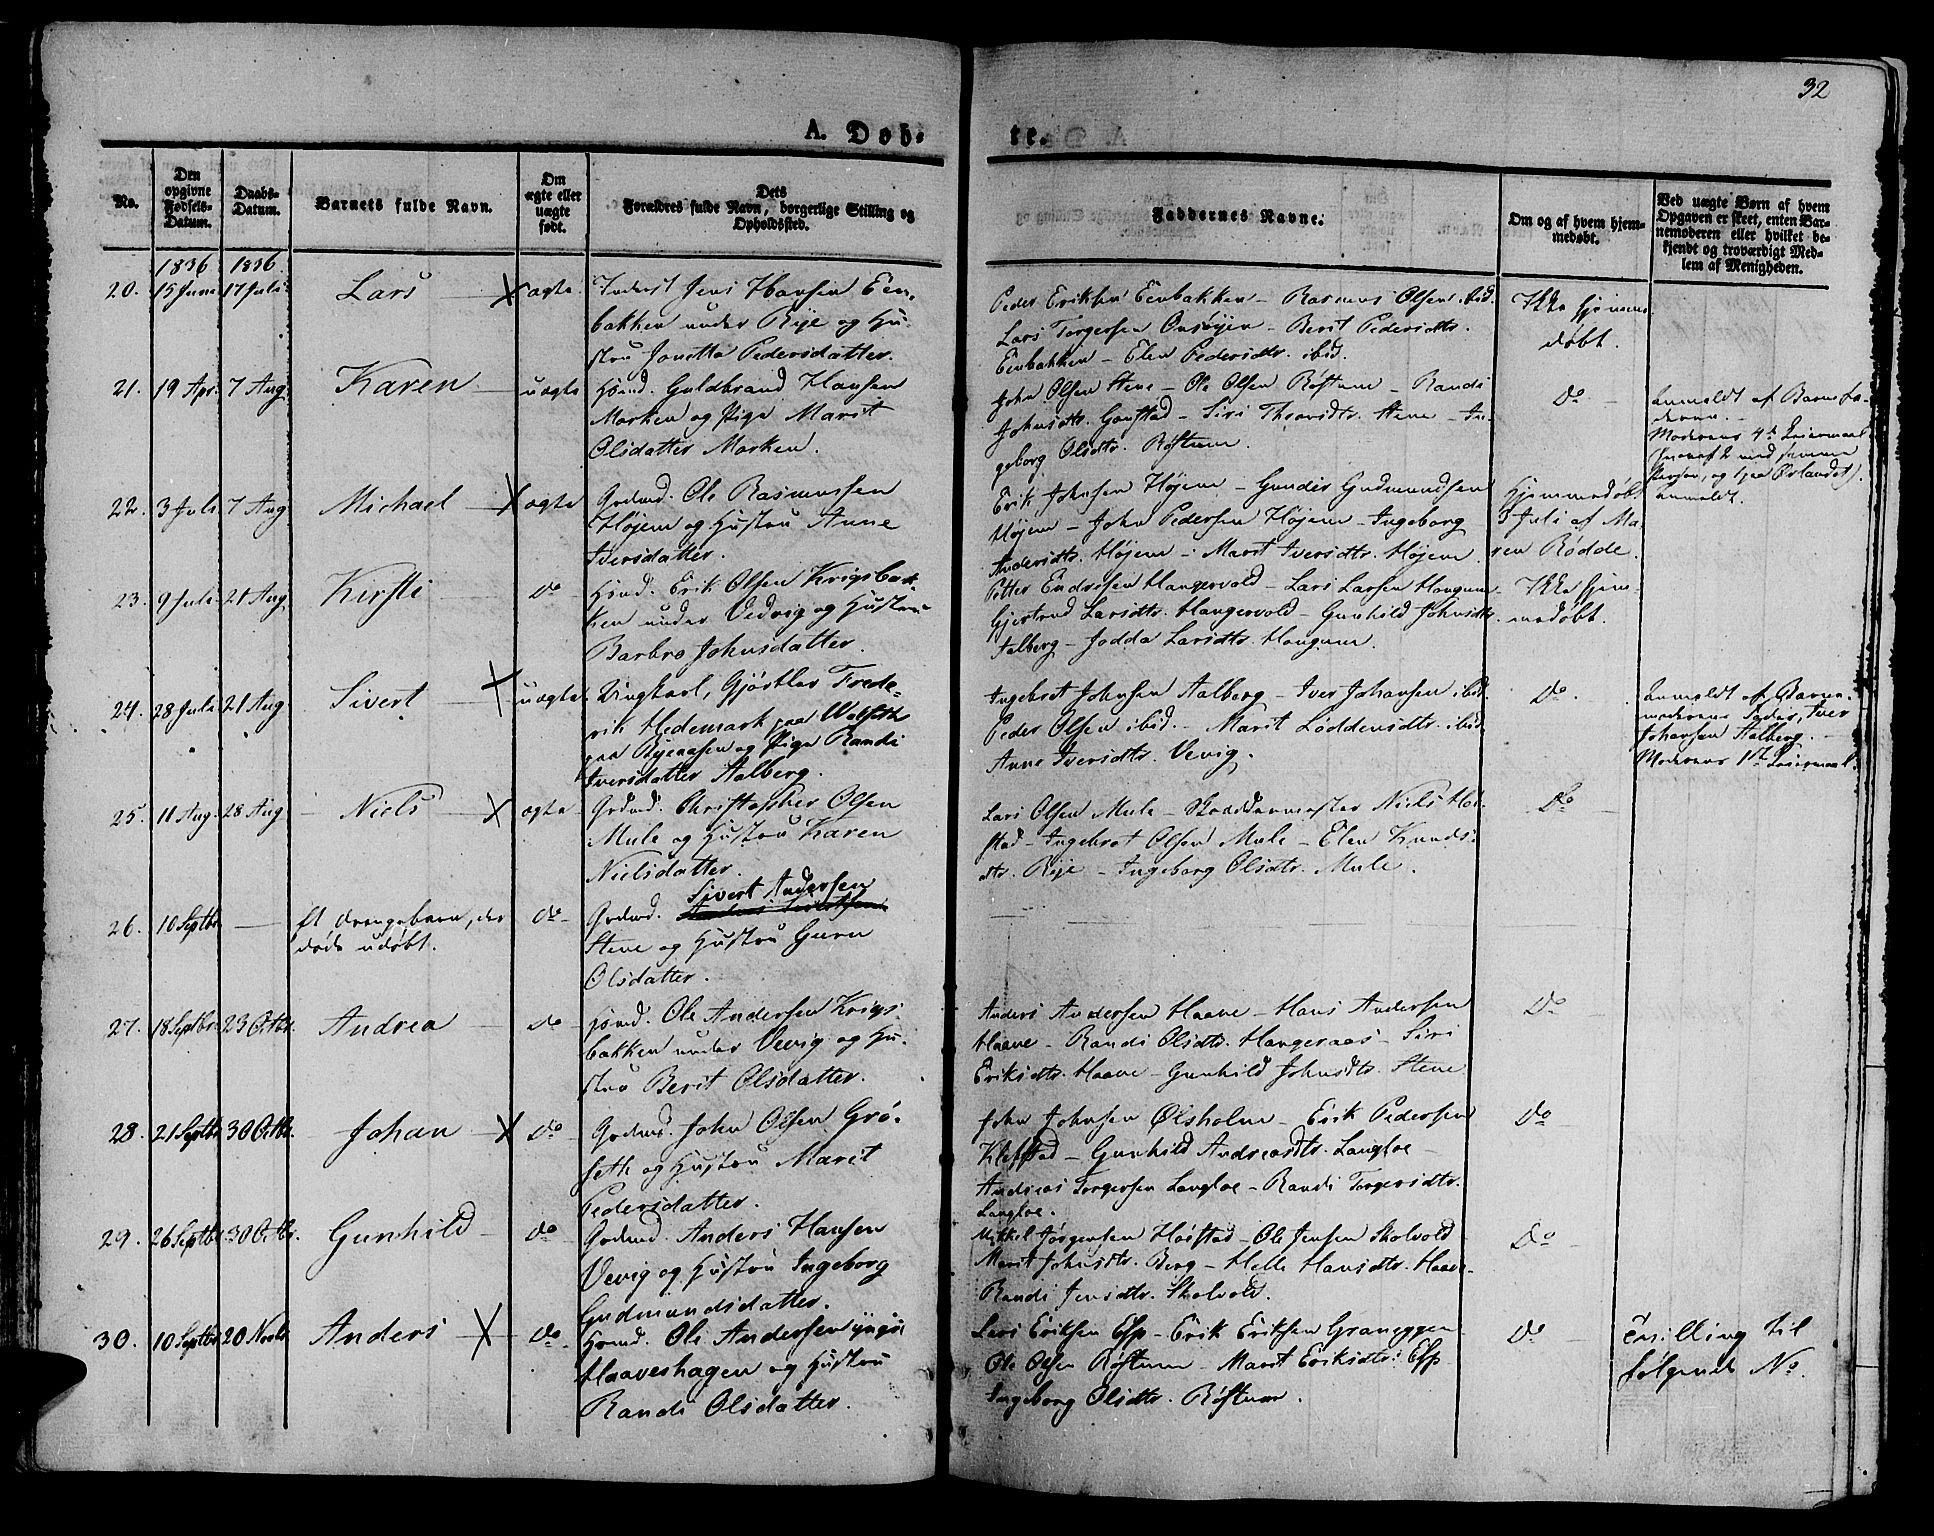 32
A. Døb-
te.
No.
Den opgivne Fødsels-Datum.
Daabs-Datum.
Barnets fulde Navn.
Om ægte eller uægte født.
Dets Forældres fulde Navn, borgerlige Stilling og Opholdssted.
Faddernes Navne.
Om og af hvem hjem-medøbt.
Ved uægte Børn af hvem Opgaven er skeet, enten Bar-nemoderen eller hvilket be-kjendt og troværdigt Med-lem af Menigheden.
1836 1836
20. 15 Juni 17 Juli Lars X ægte Inderst Jens Hansen Een-
bakken under Rije og Hu-
stru Jonetta Pedersdatter.
Peder Eriksen Eenbakken – Rasmus Olsen ibid.
Lars Torgersen Onsøjen – Berit Pedersdtr.
Eenbakken – Elen Pedersdtr. ibid.
Ikke hjemme-
døbt.
21. 19 Apr. 7 Aug Karen – uægte Hsmd. Guldbrand Hansen
Morken og Pige Marit
Olsdatter Morken.
John Olsen Stene – Ole Olsen Røstum – Randi
Johnsdtr. Gaustad – Siri Thoresdtr. Stene – In-
geborg Olsdtr. Røstum.
Do
Anmeldt af Barnefa-
deren. –
Moderens 4de Leiermaal
(hvoraf 2 med samme
Person, og paa Ørlandet).
anmeldt.
22. 3 Juli 7 Aug Michael X ægte Grdmd. Ole Rasmussen
Højem og Hustru Anne
Iversdatter.
Erik Johnsen Højem – Gunder Gudmundsen
Højem – John Pedersen Højem – Ingeborg
Andersdtr. Højem – Marit Iversdtr. Højem.
Hjemmedøbt
3 Juli af Ma-
ren Rødde.
23. 9 Juli 21 Aug Kirsti do Hsmd. Erik Olsen Krigsbak-
ken under Vedvig og Hustru
Barbro Johnsdatter.
Petter Endresen Hangervold – Lars Larsen Haugum
Gjertrud Larsdtr. Hangervold – Gunhild Johnsdtr.
Aalberg – Jodda Larsdtr. Haugum.
Ikke hjem-
medøbt.
24. 28 Juli 21 Aug Sivert X uægte Ungkarl, Gjørtler Frede-
rik Hedemark
og Pige Randi
Iversdatter Aalberg.
Ingebrot Johnsen Aalberg – Iver Johansen ibid.
Peder Olsen ibid. – Marit Løddensdtr. ibid.
Anne Iversdtr. Vevig.
Do.
Anmeldt af Barne-
moderens Fader, Iver
Johansen Aalberg. –
Moderens 1ste Leiermaal.
25. 11 Aug. 28 Aug – Niels X ægte Grdmd. Christopher Olsen
Mule og Hustru Karen
Nielsdatter.
Lars Olsen Mule – Niels Hol-
stad – Ingebrot Olsen Mule – Elen Knuds-
dtr. Rije – Ingeborg Olsdtr. Mule.
Do
26. 10 Septbr – Et Drengebarn, der
døde udøbt.
do Grdmd. Sivert Andersen
Stene og Hustru Guru
Olsdatter.
27. 18 Septbr 23 Octbr. Andrea – do – Hsmd. Ole Andersen Krigs-
bakken under Vevig og Hu-
stru Berit Olsdatter.
Anders Andersen Haave – Hans Andersen
Haave – Randi Olsdtr. Hangeraas – Siri
Eriksdtr. Haave – Gunhild Johnsdtr. Stene
Do
28. 21 Septbr 30 Octbr. Johan X do Grdmd. John Olsen Grø-
seth og Hustru Marit
Pedersdatter.
John Johnsen Ølsholm – Erik Pedersen
Klefstad – Gunhild Andreasdtr. Langloe –
Andreas Torgersen Langloe – Randi Torgersdtr.
Langloe.
Do
29. 26 Septbr 30 Octbr. Gunhild – do Grdmd. Anders Hansen
Vevig og Hustru Ingeborg
Gudmundsdatter.
Mikkel Jørgensen Høistad – Ole Jensen Skolvold
Marit Johnsdtr. Berg – Helle Hansdtr. Haave
Randi Jensdtr. Skolvold.
Do
30. 10 Septbr 20 Novbr Anders X – do Hsmd. Ole Andersen yngre
Haaveshagen og Hustru
Randi Olsdatter.
Lars Eriksen Esp – Erik Eriksen Graneggen
Ole Olsen Røstum – Marit Eriksdtr. Esp
Ingeborg Olsdtr. Røstum.
Do
Tvilling til
følgende No.